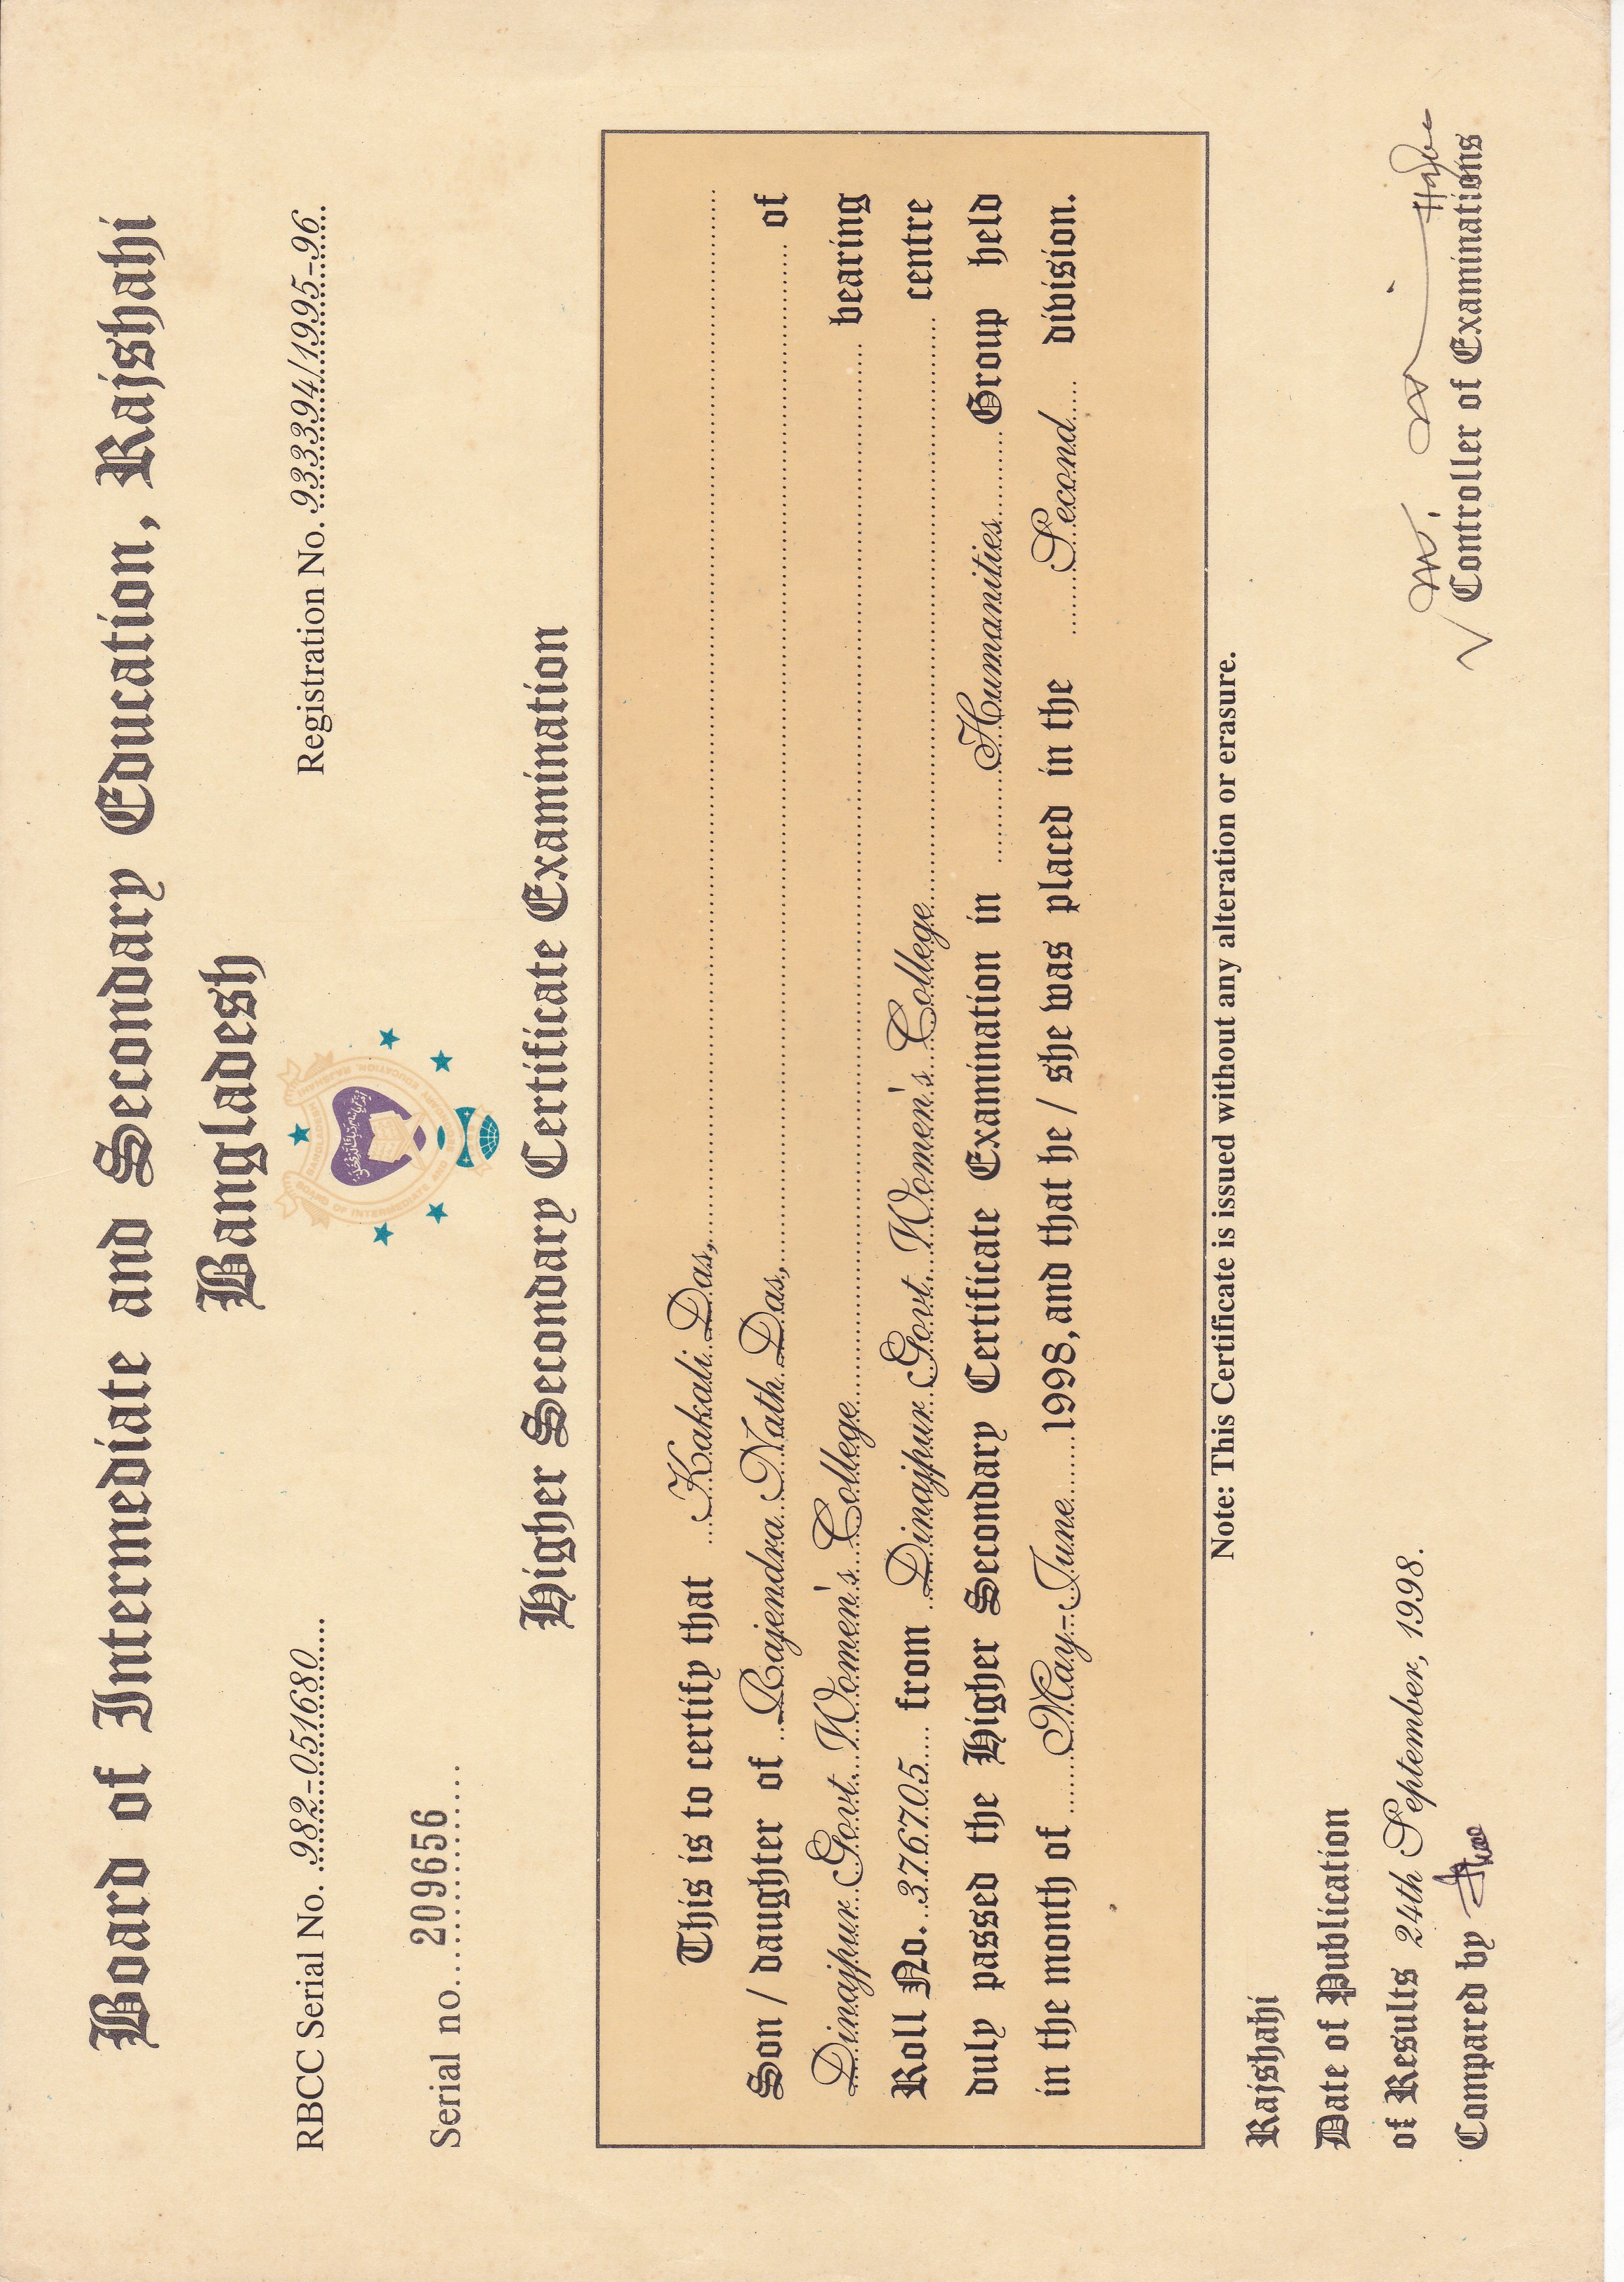 Board of Intermediate and Secondary Education, Rajshahi
Bangladesh
RBCC Serial No. 982-051680
Registration No. 933394/1995-96
Serial no. 209656
Higher Secondary Certificate Examination
This is to certify that Kakali Das,
Son / daughter of Rajendra Nath Das, of
Dinajpur Govt. Women's College bearing
Roll No. 376705 from Dinajpur Govt. Women's College centre
duly passed the Higher Secondary Certificate Examination in Humanities Group held
in the month of May-June 1998, and that he / she was placed in the Second division.
Note: This Certificate is issued without any alteration or erasure.
Rajshahi
Date of Publication
of Results 24th September, 1998.
Compared by
Controller of Examinations